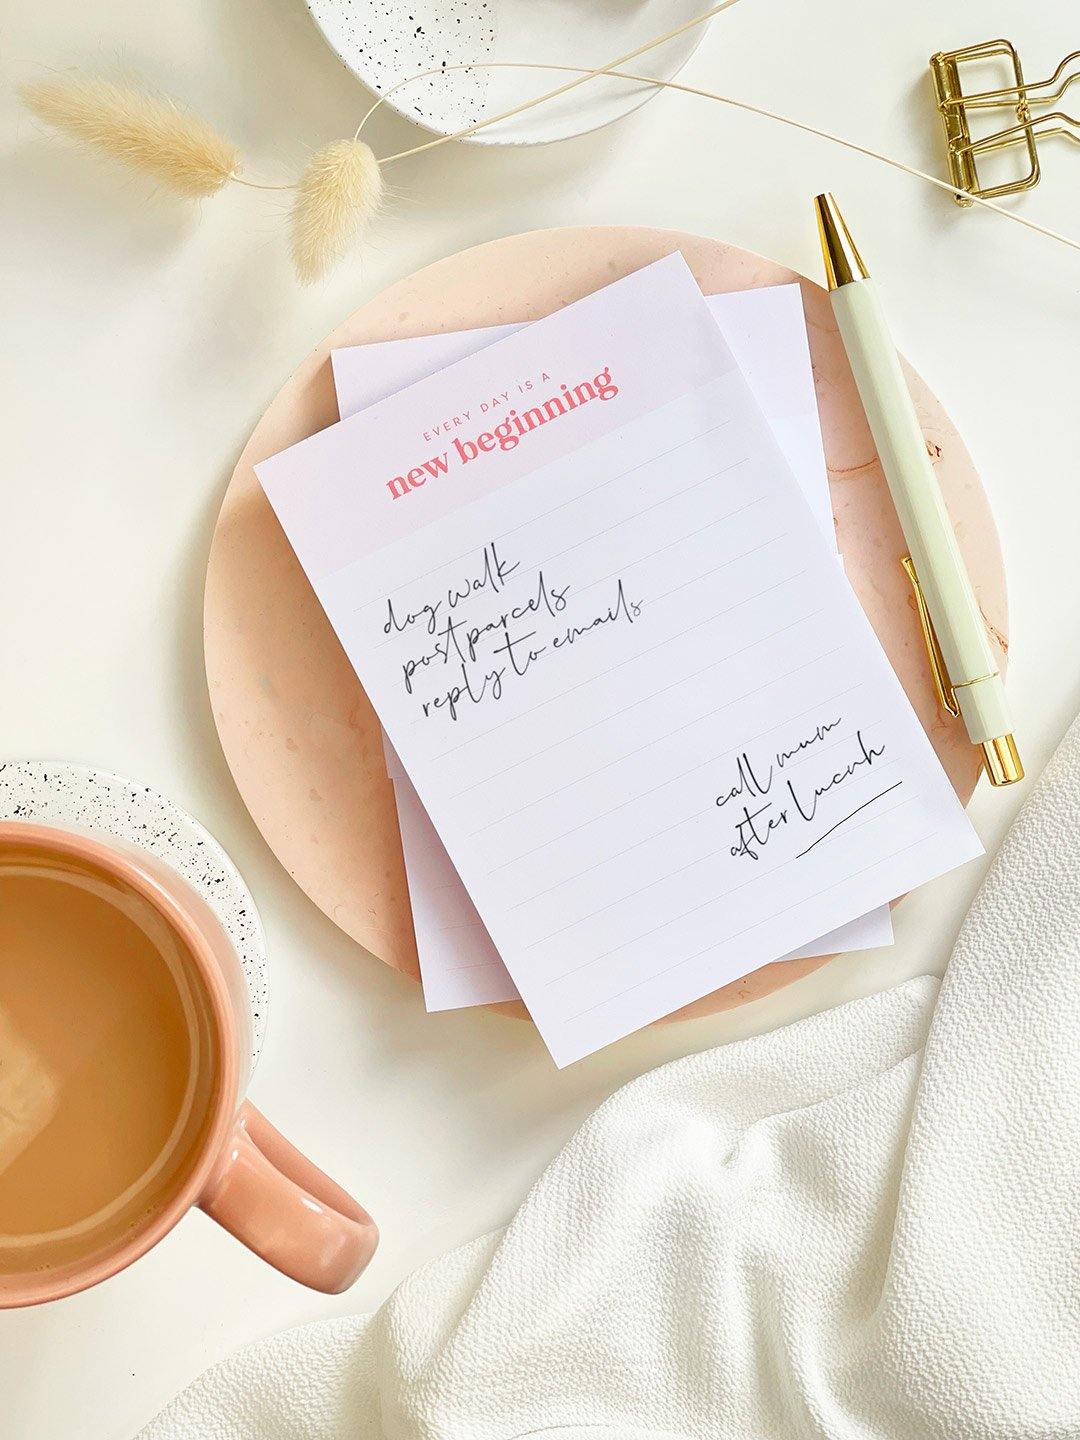 EVERY DAY IS A
new beginning
dog walk
post parcels
reply to emails
call mum
after lucnh